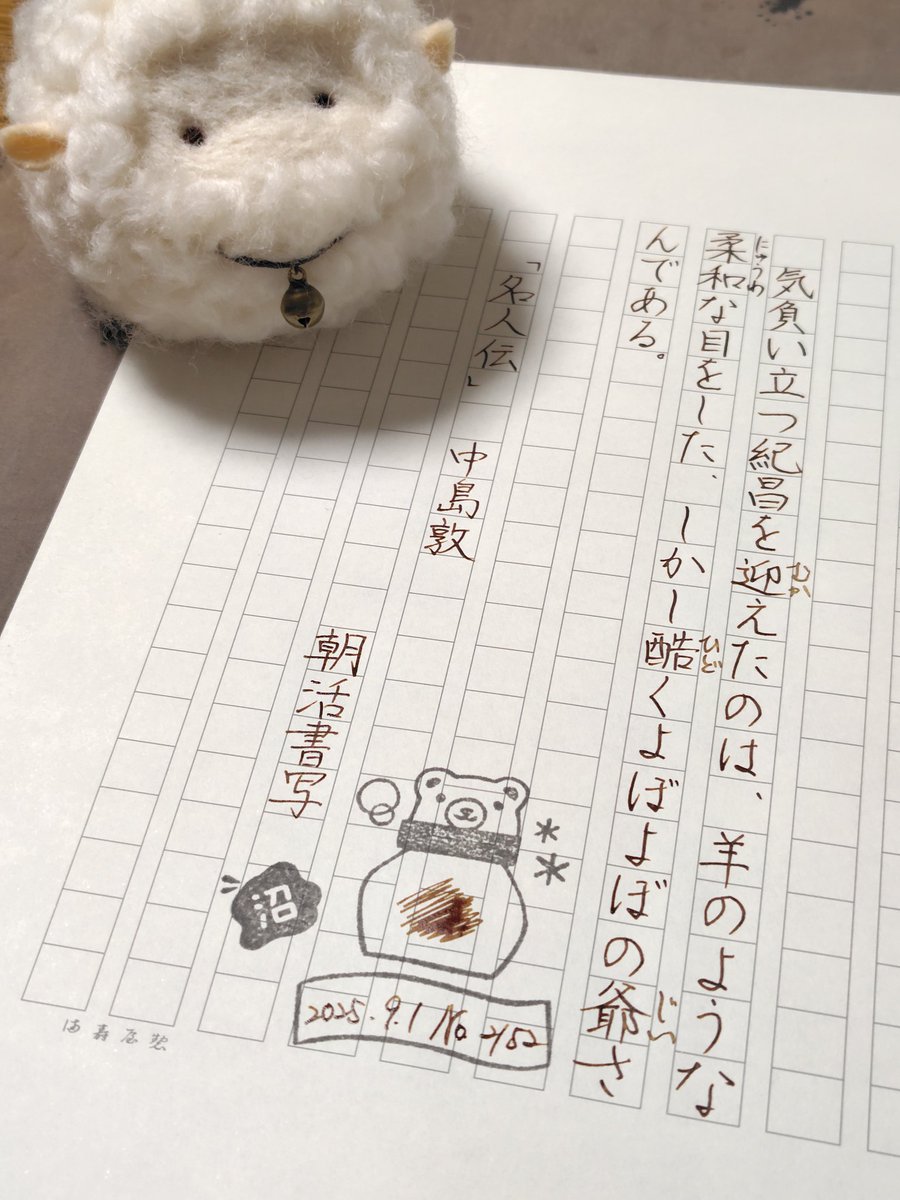 気負い立つ紀昌を迎えたのは、羊のような
むか
柔和な目をした、しかし酷くよぼよぼの爺さ
にゅうわ
ひど
じい
んである。
「名人伝」 中島敦
朝活書写
沼
2025.9.1 No